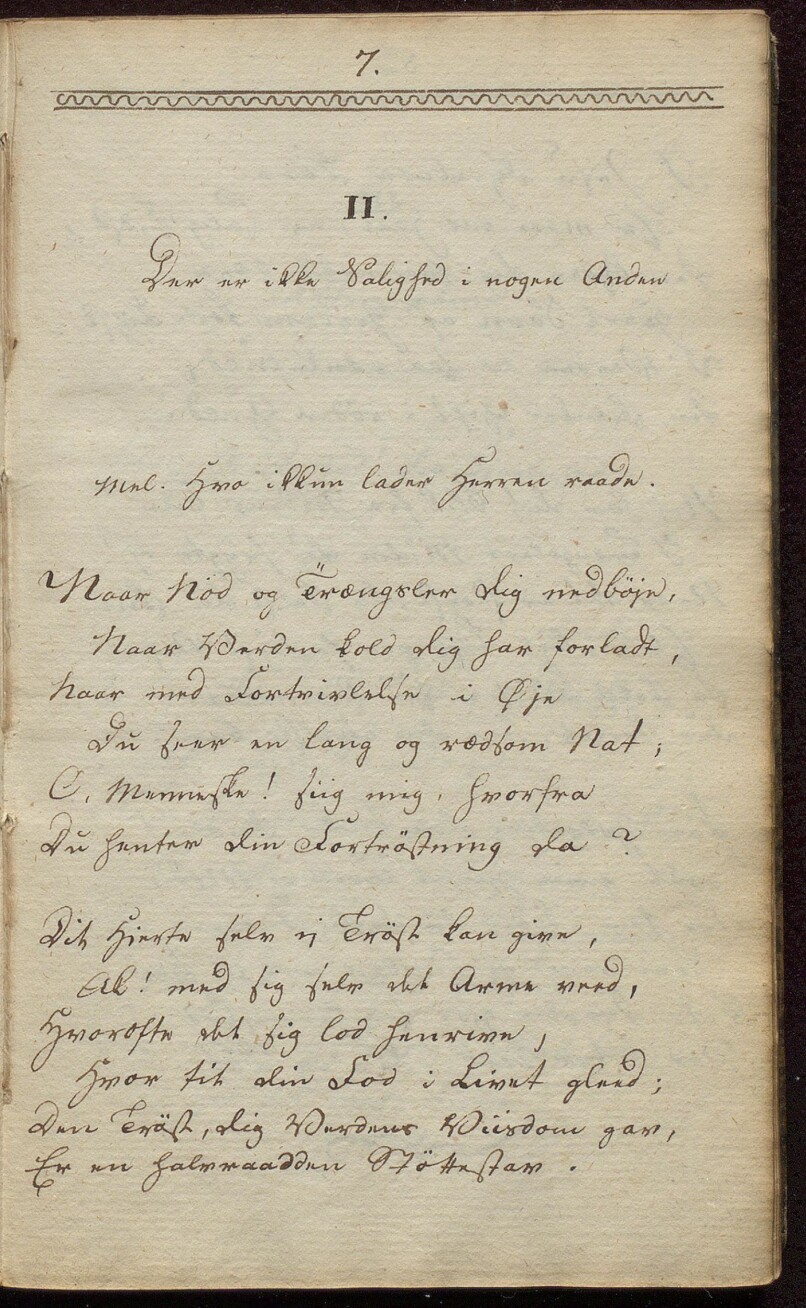 7.
II.
Der er ikke Salighed i nogen Anden
Mel. Hvo ikkun lader Herren raade.
Naar Nød og Trængsler dig nedbøje,
Naar Verden kold dig har forladt,
Naar med Fortvivlelse i Øje
Du seer en lang og rædsom Nat;
O, Menneske! siig mig, hvorfra
Du henter din Fortröstning da?
Dit Hjerte selv ej Tröst kan give,
Ak! med sig selv det Arme vred,
Hvorofte det sig lod henrive,
Hvor tit din Fod i Livet gleed;
Den Tröst, dig Verdens Viisdom gav,
Er en halvraadden Stöttestav.